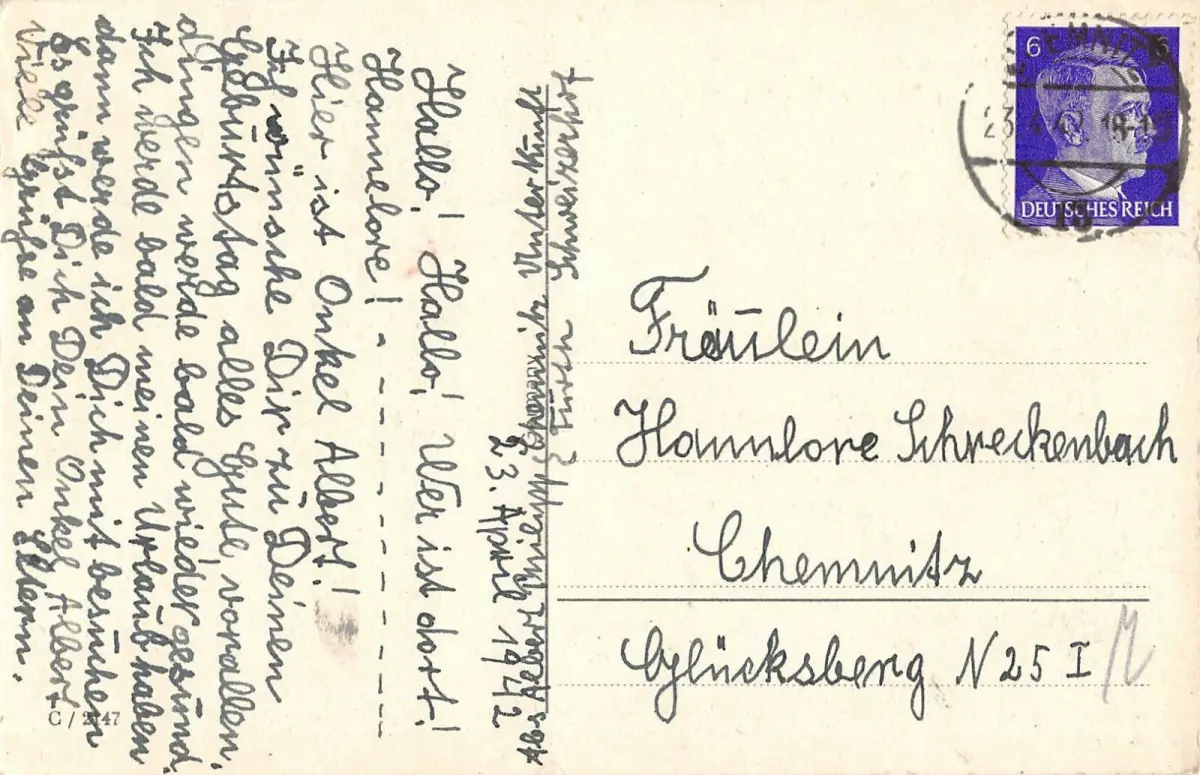 23. April 1942
Hallo! Hallo! Wer ist dort!
Hannelore!
Hier ist Onkel Albert!
Ich wünsche Dir zu Deinen
Geburtstag alles Gute, vorallen
dingen werde bald wieder gesund.
Ich werde bald meinen Urlaub haben
dann werde ich Dich mit besuchen
Es grüßt Dich Dein Onkel Albert
Viele Grüße an Deinen Eltern.
C / 2147
Abs Albert Chemnitz Unterkunft
Schweizerhof
6 6
DEUTSCHES REICH
CHEMNITZ
23.4.42 18-19
Fräulein
Hannlore Schreckenbach
Chemnitz
Glücksberg N 25 I